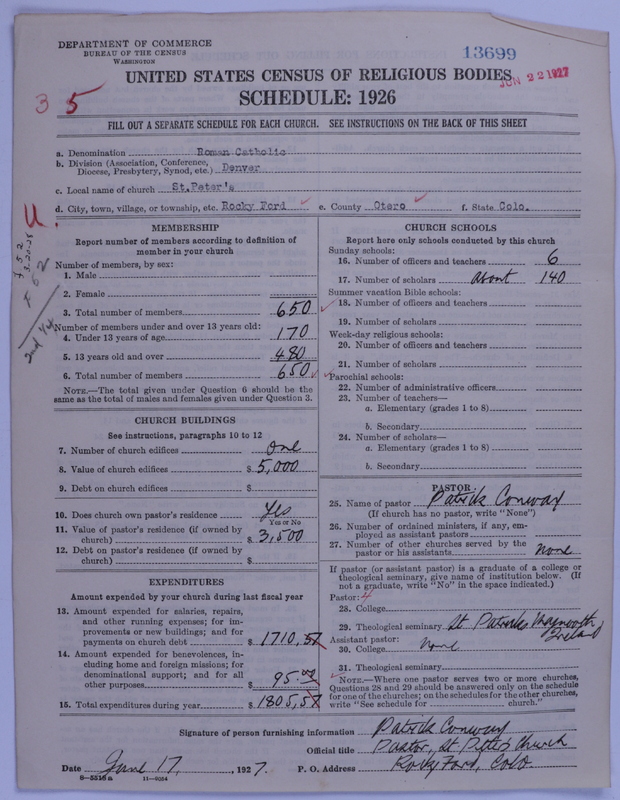 DEPARTMENT OF COMMERCE
BUREAU OF THE CENSUS
WASHINGTON
13699
UNITED STATES CENSUS OF RELIGIOUS BODIES
JUN 22 1927
SCHEDULE: 1926
3 5
FILL OUT A SEPARATE SCHEDULE FOR EACH CHURCH. SEE INSTRUCTIONS ON THE BACK OF THIS SHEET
a. Denomination Roman Catholic
b. Division (Association, Conference,
Diocese, Presbytery, Synod, etc.) Denver
c. Local name of church St.Peter's
d. City, town, village, or township, etc. Rocky Ford e. County Otero f. State Colo.
MEMBERSHIP
Report number of members according to definition of
member in your church
Number of members, by sex:
1. Male
2. Female
3. Total number of members 650
Number of members under and over 13 years old:
4. Under 13 years of age 170
5. 13 years old and over 480
6. Total number of members 650
NOTE.—The total given under Question 6 should be the
same as the total of males and females given under Question 3.
CHURCH BUILDINGS
See instructions, paragraphs 10 to 12
7. Number of church edifices One
8. Value of church edifices $ 5,000
9. Debt on church edifices $
10. Does church own pastor's residence Yes
Yes or No
11. Value of pastor's residence (if owned by
church) $ 3,500
12. Debt on pastor's residence (if owned by
church) $
EXPENDITURES
Amount expended by your church during last fiscal year
13. Amount expended for salaries, repairs,
and other running expenses; for im-
provements or new buildings; and for
payments on church debt $ 1710,57
14. Amount expended for benevolences, in-
cluding home and foreign missions; for
denominational support; and for all
other purposes $ 95.00
15. Total expenditures during year $ 1805,57
CHURCH SCHOOLS
Report here only schools conducted by this church
Sunday schools:
16. Number of officers and teachers 6
17. Number of scholars about 140
Summer vacation Bible schools:
18. Number of officers and teachers
19. Number of scholars
Week-day religious schools:
20. Number of officers and teachers
21. Number of scholars
Parochial schools:
22. Number of administrative officers
23. Number of teachers—
a. Elementary (grades 1 to 8)
b. Secondary
24. Number of scholars—
a. Elementary (grades 1 to 8)
b. Secondary
PASTOR
25. Name of pastor Patrick Conway
(If church has no pastor, write "None")
26. Number of ordained ministers, if any, em-
ployed as assistant pastors
27. Number of other churches served by the
pastor or his assistants none
If pastor (or assistant pastor) is a graduate of a college or
theological seminary, give name of institution below. (If
not a graduate, write "No" in the space indicated.)
Pastor: 4
28. College
29. Theological seminary St Patricks Maynooth
Ireland
Assistant pastor:
30. College None
31. Theological seminary
NOTE.—Where one pastor serves two or more churches,
Questions 28 and 29 should be answered only on the schedule
for one of the churches; on the schedules for the other churches,
write "See schedule for church."
Signature of person furnishing information Patrick Conway
Official title Pastor, St Peters Church
Date June 17, 1927. P. O. Address Rocky Ford, Colo
11—9264